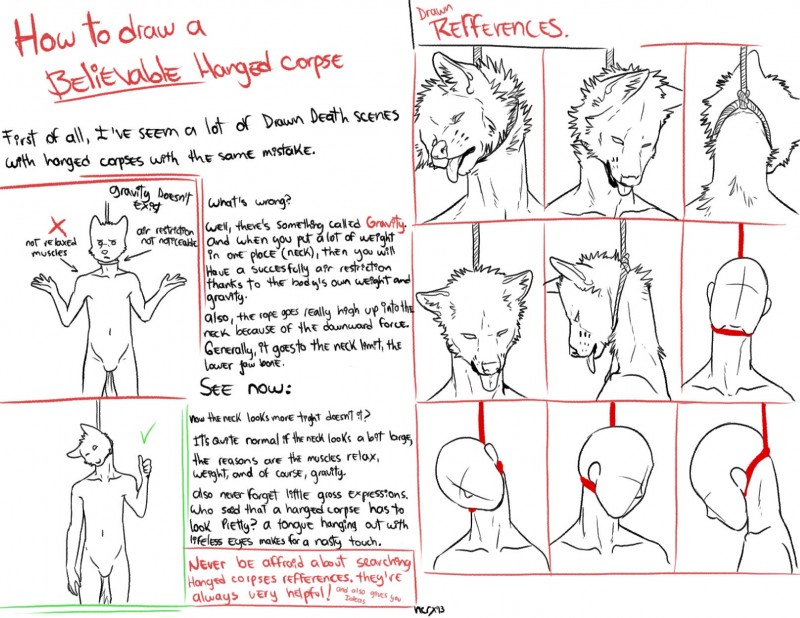 How to draw a
Believable Hanged corpse
First of all, I've seem a lot of Drawn Death scenes
with hanged corpses with the same mistake.
gravity Doesn't
exist
not relaxed
muscles
air restriction
not noticeable
What's wrong?
Well, there's something called Gravity.
And when you put a lot of weight
in one place (neck), then you will
Have a succesfully air restriction
thanks to the body's own weight and
gravity.
Also, the rope goes really high up into the
neck because of the downward force.
Generally, it goes to the neck limit, the
lower jaw bone.
See now:
Now the neck looks more tright doesn't it?
It's quite normal if the neck looks a bit large,
the reasons are the muscles relax,
weight, and of course, gravity.
Also never forget little gross expressions.
Who said that a hanged corpse has to
look Pretty? a tongue hanging out with
lifeless eyes makes for a nasty touch.
Never be affraid about searching
Hanged corpses refferences. they're
always very helpful! and also gives you
ideas
Drawn
Refferences.